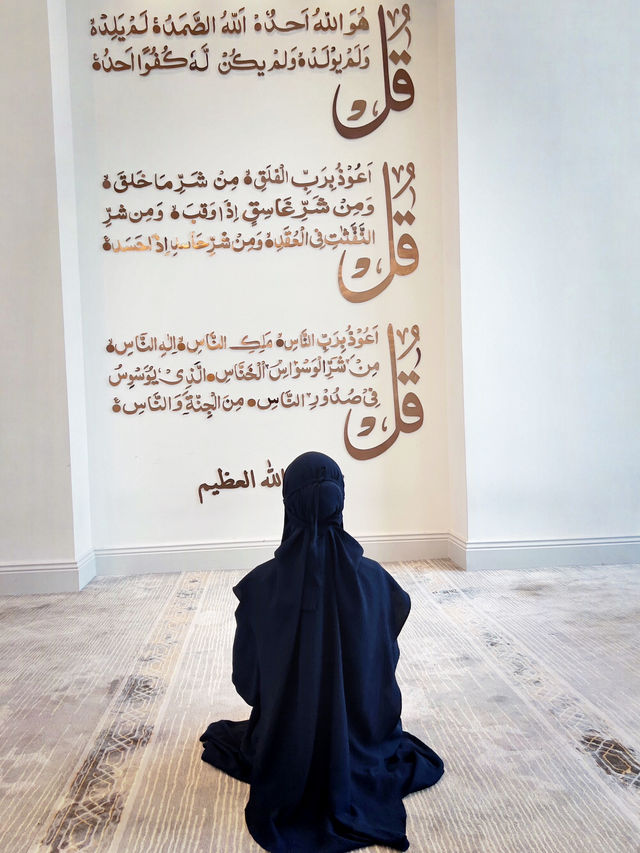 قُلْ هُوَ اللهُ اَحَدٌ ۝ اَللهُ الصَّمَدُ ۝ لَمْ يَلِدْ ۝
وَلَمْ يُوْلَدْ ۝ وَلَمْ يَكُنْ لَّهٗ كُفُوًا اَحَدٌ ۝
قُلْ اَعُوْذُ بِرَبِّ الْفَلَقِ ۝ مِنْ شَرِّ مَا خَلَقَ ۝
وَمِنْ شَرِّ غَاسِقٍ اِذَا وَقَبَ ۝ وَمِنْ شَرِّ
النَّفّٰثٰتِ فِى الْعُقَدِ ۝ وَمِنْ شَرِّ حَاسِدٍ اِذَا حَسَدَ ۝
قُلْ اَعُوْذُ بِرَبِّ النَّاسِ ۝ مَلِكِ النَّاسِ ۝ اِلٰهِ النَّاسِ ۝
مِنْ شَرِّ الْوَسْوَاسِ الْخَنَّاسِ ۝ الَّذِىْ يُوَسْوِسُ
فِىْ صُدُوْرِ النَّاسِ ۝ مِنَ الْجِنَّةِ وَالنَّاسِ ۝
الله العظيم